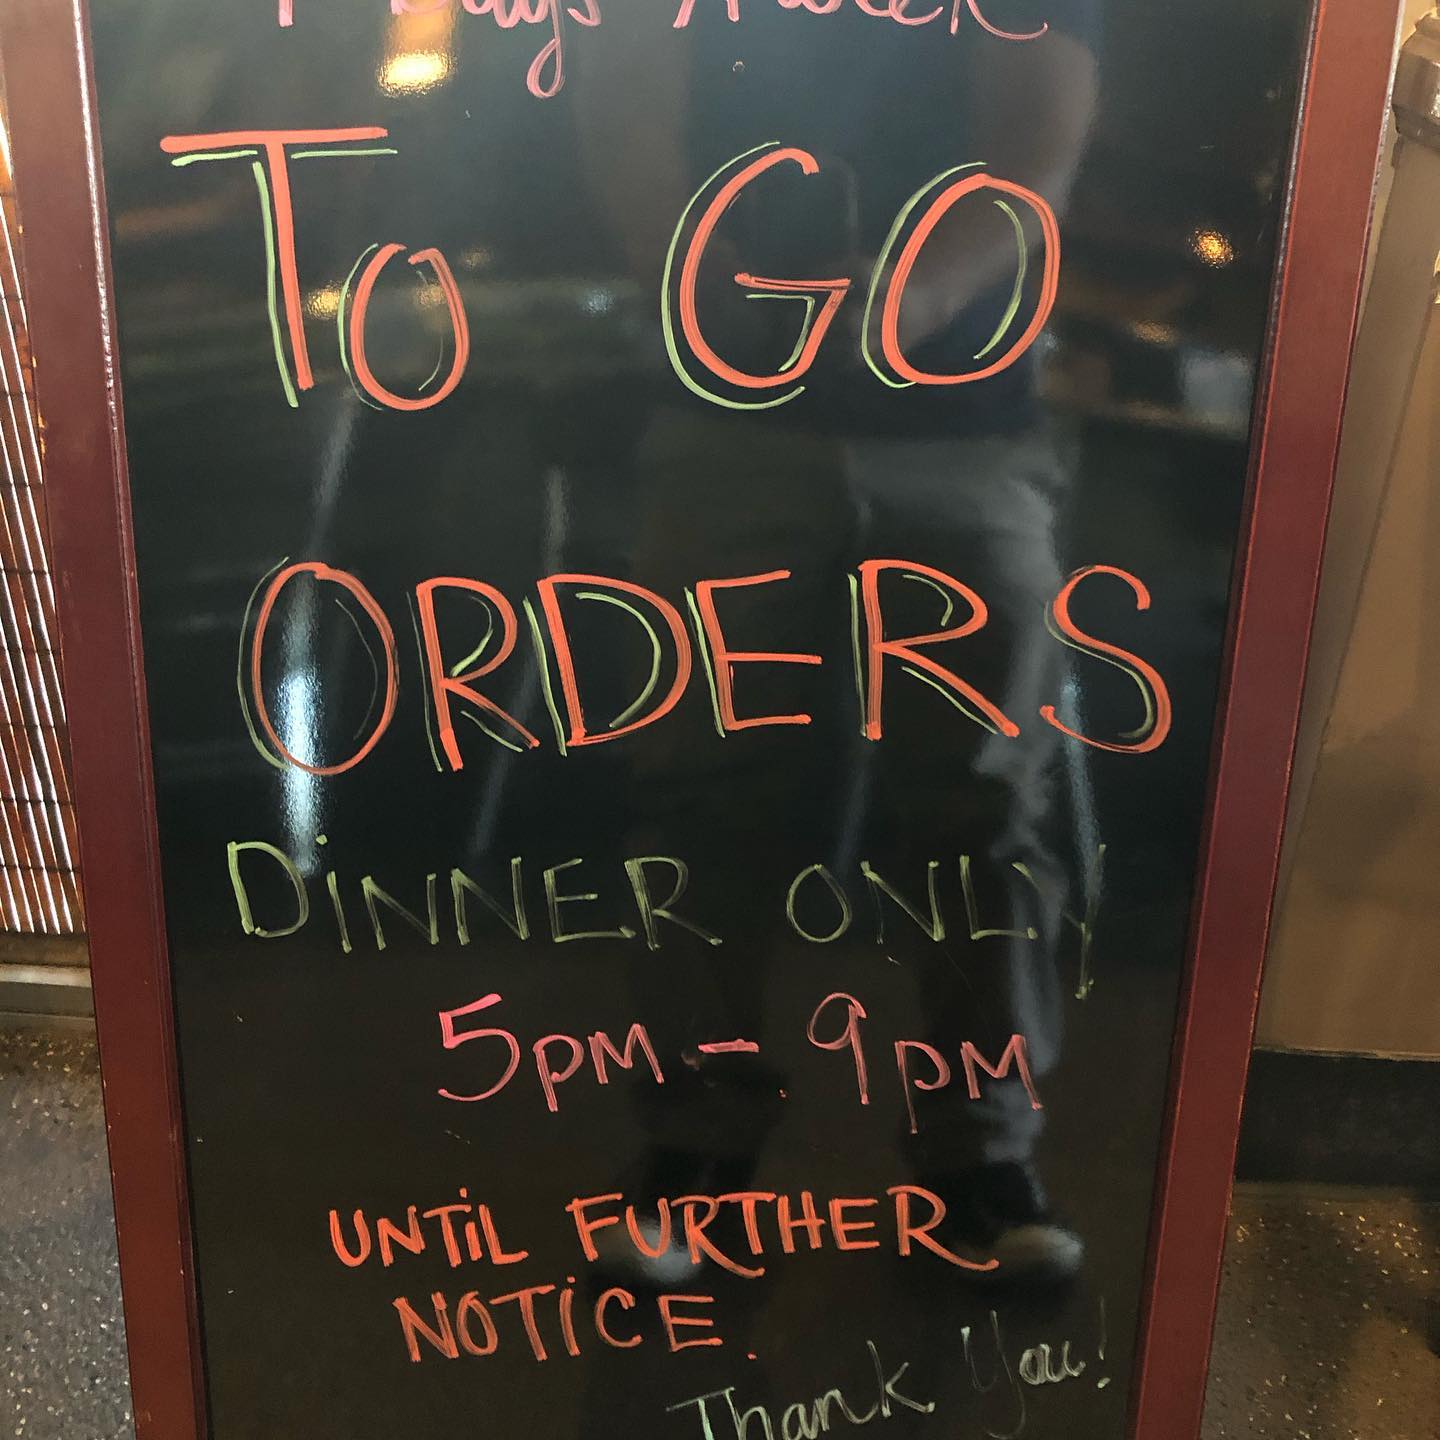 Days A week
To GO
ORDERS
DiNNER ONLY
5pm - 9pm
UNTiL FURTHER
NOTiCE.
Thank You!